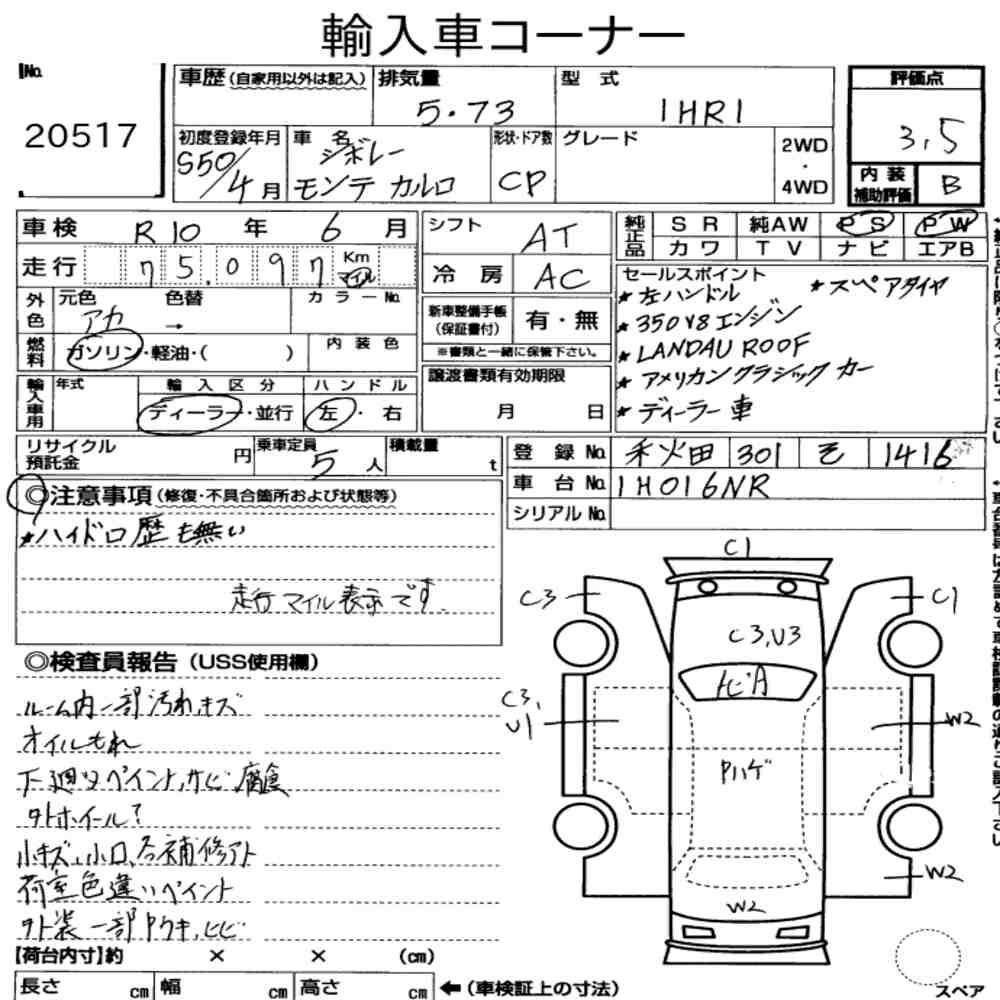 輸入車コーナー
No.
20517
車歴 (自家用以外は記入)
排気量
5.73
型式
1HR1
評価点
3.5
内装補助評価 B
初度登録年月
S50/4月
車名
シボレー
モンテカルロ
形状・ドア数
CP
グレード
2WD
・
4WD
車検 R10年 6月
走行 75.097 Km マイル
外色
元色 色替
アカ →
カラーNo.
燃料
ガソリン・軽油・( )
内装色
輸入車用
年式
輸入区分
ディーラー・並行
ハンドル
左・右
シフト AT
冷房 AC
新車整備手帳
(保証書付)
有・無
※書類と一緒に保管下さい。
譲渡書類有効期限
月 日
純正品
SR 純AW PS PW
カワ TV ナビ エアB
セールスポイント
★左ハンドル ★スペアタイヤ
★350V8エンジン
★LANDAU ROOF
★アメリカンクラシックカー
★ディーラー車
リサイクル預託金 円
乗車定員 5人
積載量 t
登録No. 秋田 301 そ 1416
車台No. 1H016NR
シリアルNo.
◎注意事項 (修復・不具合箇所および状態等)
★ハイドロ歴も無い
走行マイル表示です.
◎検査員報告 (USS使用欄)
ルーム内一部汚れ、キズ
オイルもれ
下廻りペイント、サビ腐食
外ホイール?
小キズ、小凹、各補修アト
荷室色違いペイント
外装一部ウキ、ヒビ
C1
C3
C1
C3,U3
トビA
C3,
U1
W2
Pハゲ
W2
W2
スペア
【荷台内寸】約 × × (cm)
長さ cm 幅 cm 高さ cm ←(車検証上の寸法)